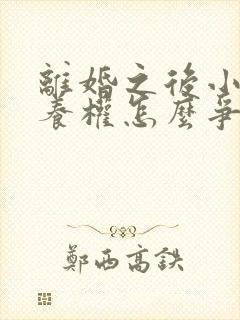 離婚之後小
養權怎麼爭
鄭西高鉄